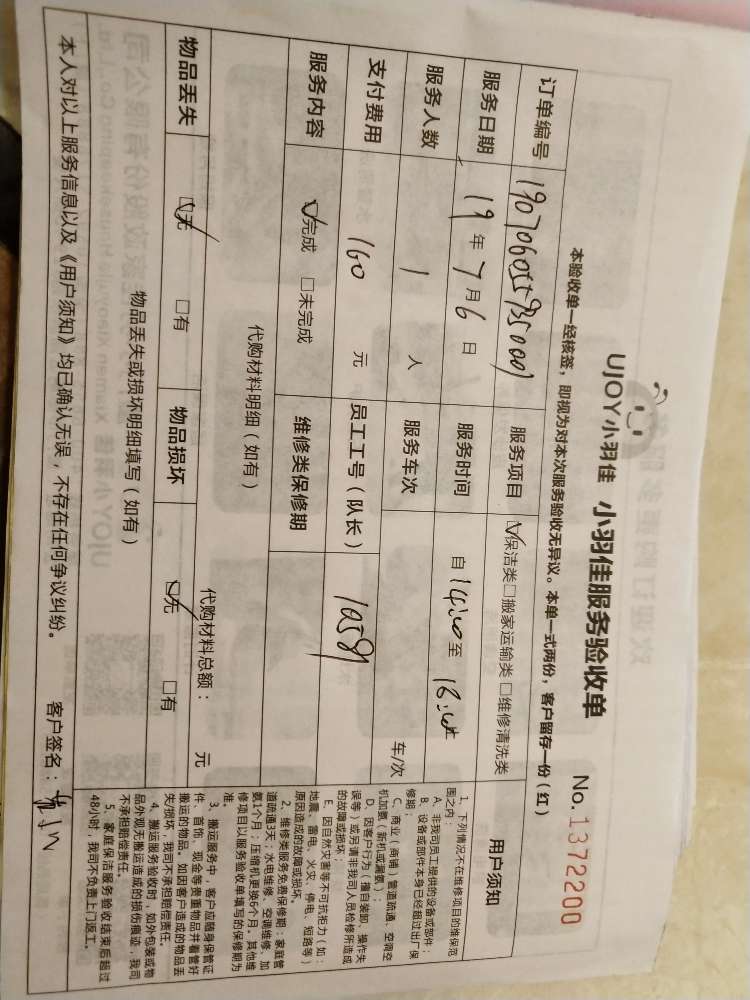 UJOY小羽佳 小羽佳服务验收单
No.1372200
本验收单一经核签，即视为对本次服务验收无异议。本单一式两份，客户留存一份（红）
订单编号 服务项目 ☑保洁类□搬家运输类□维修清洗类
服务日期 19年7月6日 服务时间 自14:00至
服务人数 1人 服务车次 车/次
支付费用 160元 员工工号（队长）
服务内容 ☑完成 □未完成 维修类保修期
代购材料明细（如有）
代购材料总额： 元
物品丢失 ☑无 □有 物品损坏 ☑无 □有
物品丢失或损坏明细填写（如有）
本人对以上服务信息以及《用户须知》均已确认无误，不存在任何争议纠纷。 客户签名：
用户须知
1、下列情况不在维修项目的维保范
围之内：
A、非我司员工提供的设备或部件；
B、设备或部件本身已经超过出厂保
修期；
C、商业（商铺）管道疏通、空调空
机加氨（亲机或漏氨）；
D、因客户行为（擅自装卸、操作失
误等）或另请非我司人员检修所造成
的故障或损坏；
E、因自然灾害等不可抗拒力（如：
地震、雷电、火灾、停电、短路等）
原因造成的故障或损坏。
2、维修类服务免费保修期：家庭管
道疏通3天；水电维修、空调维修、加
氨1个月；压缩机更换6个月。其他维
修项目以服务验收单填写的保修期为
准。
3、搬运服务中，客户应随身保管证
件、首饰、现金等贵重物品并看管好
搬运的物品，如因客户造成的物品丢
失/损坏，我司不承担赔偿责任。
4、搬运服务验收时，如外包装或物
品外观无搬运造成的损伤痕迹，我司
不承担赔偿责任。
5、家庭保洁服务验收结束后超过
48小时，我司不负责上门返工。